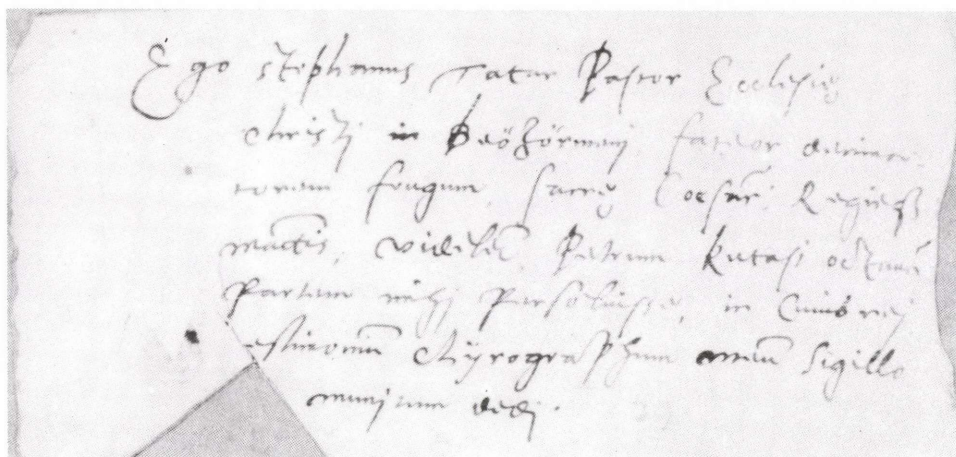 Ego Stephanus Tatar Pastor Ecclesię
Christi in Beöʒörmenj, fateor decima-
torem frugum, Sacrę Caesar. Regięqʒ
mattis, videlet, Petrum Katasi octauā
Partem mihj Persoluisse, in Cuius rej
estimoniū Chyrographum meū Sigillo
munitum dedj.